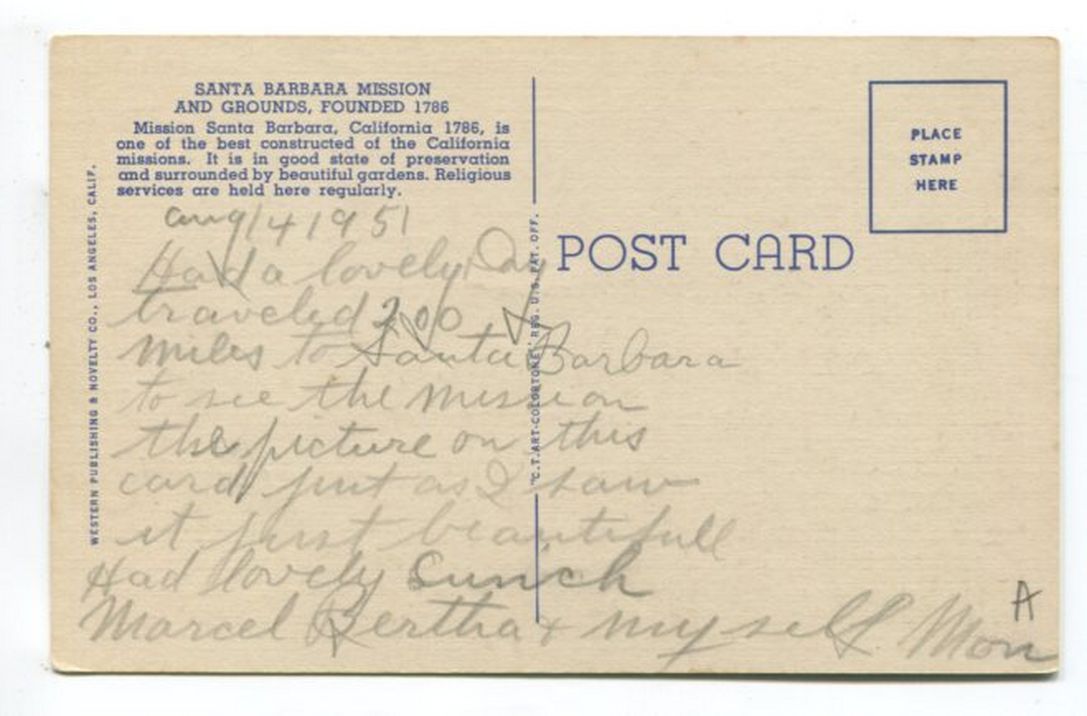 SANTA BARBARA MISSION
AND GROUNDS, FOUNDED 1786
Mission Santa Barbara, California 1786, is
one of the best constructed of the California
missions. It is in good state of preservation
and surrounded by beautiful gardens. Religious
services are held here regularly.
WESTERN PUBLISHING & NOVELTY CO., LOS ANGELES, CALIF.
"C.T.ART-COLORTONE" REG. U.S. PAT. OFF.
POST CARD
PLACE
STAMP
HERE
aug 14 1951
Had a lovely Day
traveled 200
miles to Santa Barbara
to see the mission
the picture on this
card just as I saw
it just beautifull
Had lovely Lunch
Marcel Bertha + myself Mon
A